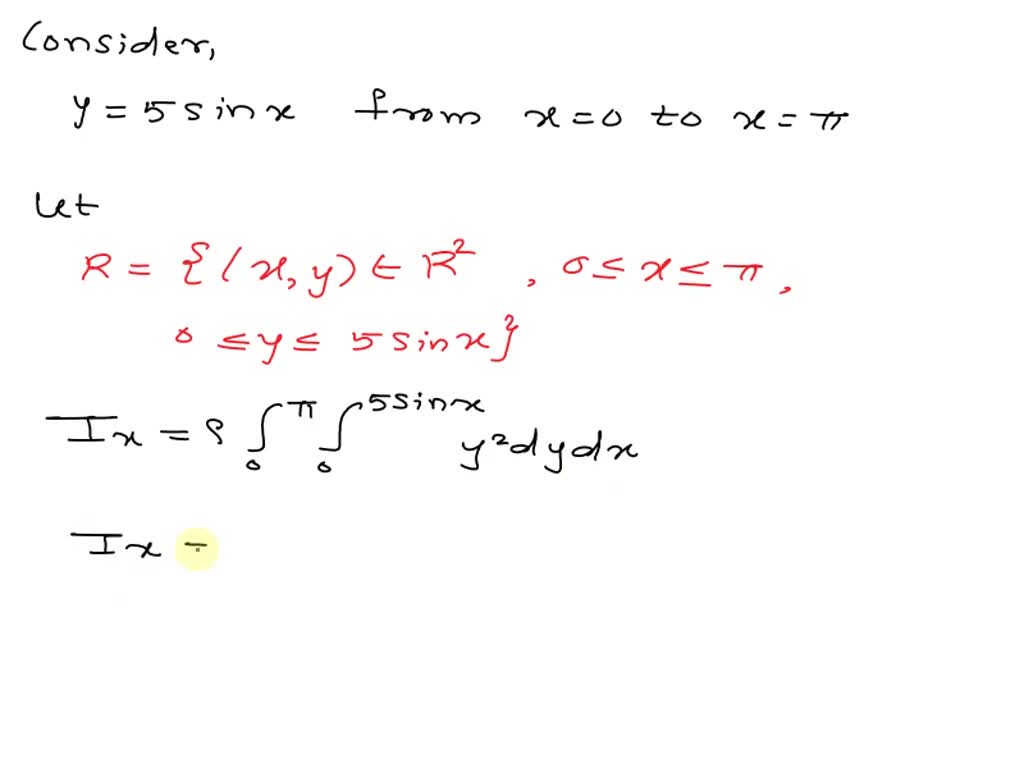 Consider,
y = 5 sin x from x = 0 to x = π
Let
R = {(x, y) ∈ R² , 0 ≤ x ≤ π ,
0 ≤ y ≤ 5 sin x}
Ix = ρ ∫₀^π ∫₀^5sinx y² dy dx
Ix =